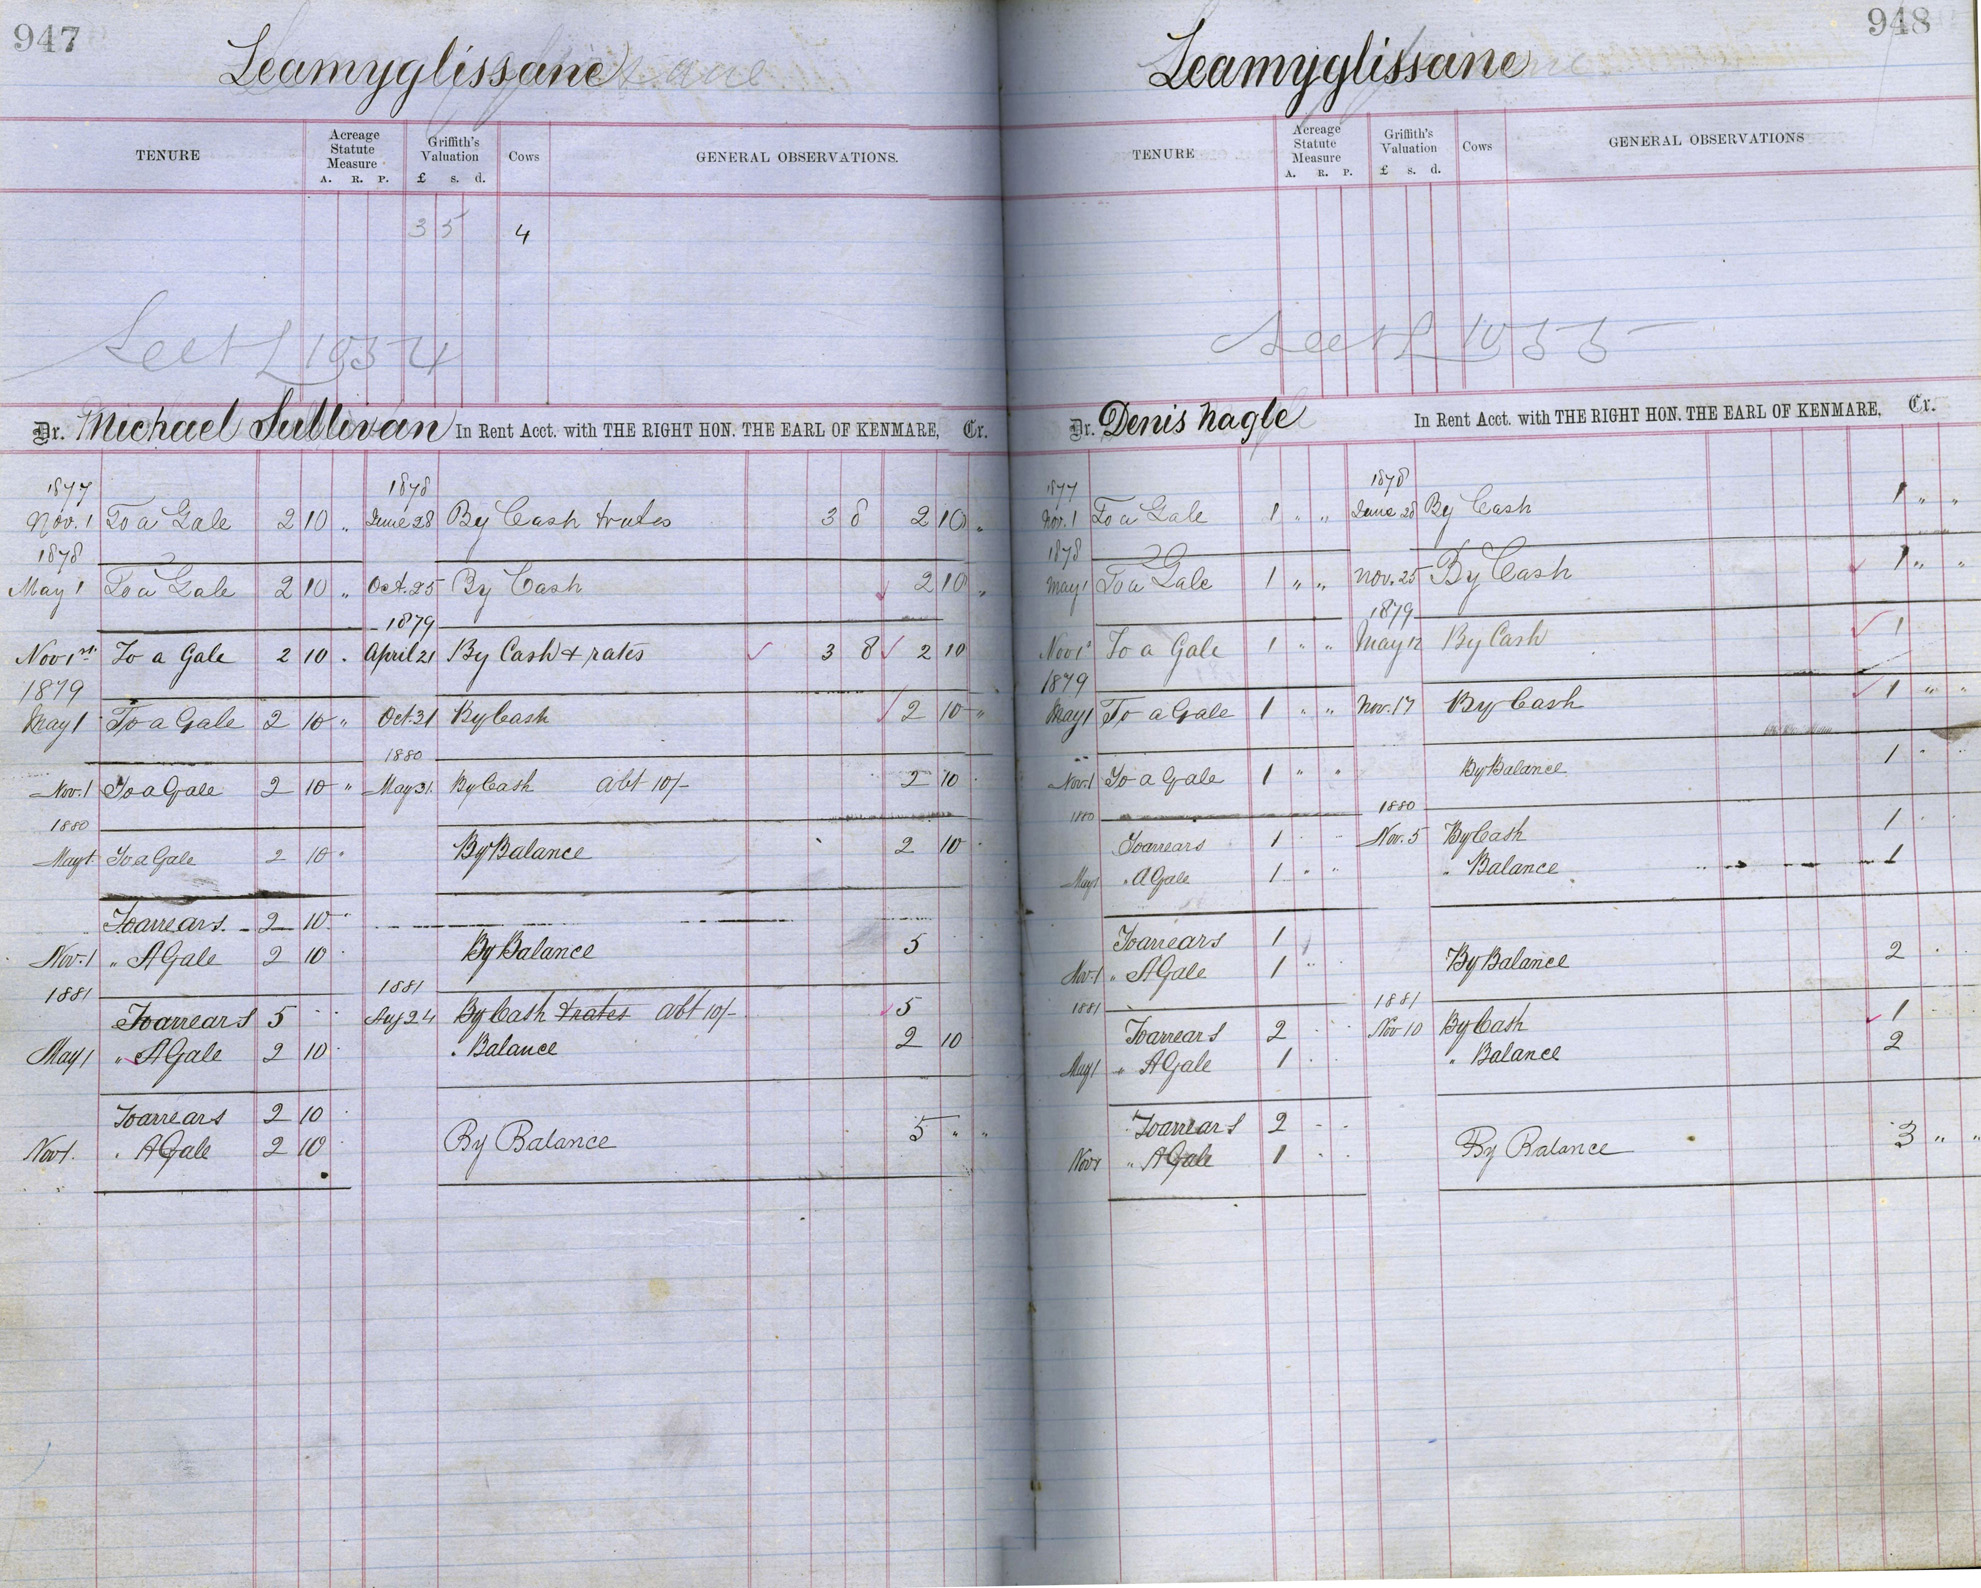 947
Leamyglissane
TENURE
Acreage Statute Measure
A. R. P.
Griffith's Valuation
£ s. d.
Cows
GENERAL OBSERVATIONS.
3 5 4
Dr. Michael Sullivan In Rent Acct. with THE RIGHT HON. THE EARL OF KENMARE, Cr.
1877 1878
Nov. 1 To a Gale 2 10 „ June 28 By Cash & rates 3 8 2 10 „
1878
May 1 To a Gale 2 10 „ Oct. 25 By Cash 2 10 „
1879
Nov 1st To a Gale 2 10 . April 21 By Cash & rates 3 8 2 10
1879
May 1 To a Gale 2 10 „ Oct. 31 By Cash 2 10 „
1880
Nov. 1 To a Gale 2 10 „ May 31. By Cash abt 10/- 2 10 .
1880
May 1 To a Gale 2 10 . By Balance 2 10 .
To arrears. 2 10 .
Nov. 1 „ A Gale 2 10 . By Balance 5
1881 1881
To arrears 5 . . Aug 24 By Cash & rates abt 10/- 5
May 1 „ A Gale 2 10 . . Balance 2 10
To arrears 2 10 .
Nov 1. . A Gale 2 10 By Balance 5 „ „
948
Leamyglissane
TENURE
Acreage Statute Measure
A. R. P.
Griffith's Valuation
£ s. d.
Cows
GENERAL OBSERVATIONS
Dr. Denis Nagle In Rent Acct. with THE RIGHT HON. THE EARL OF KENMARE, Cr.
1877 1878
Nov. 1 To a Gale 1 „ „ June 28 By Cash 1 „ „
1878
May 1 To a Gale 1 „ „ Nov. 25 By Cash 1 „ „
1879
Nov 1st To a Gale 1 „ „ May 12 By Cash 1
1879
May 1 To a Gale 1 „ „ Nov. 17 By Cash 1 „ „
Nov. 1 To a Gale 1 „ „ By Balance 1 . .
1880 1880
To arrears 1 . . Nov. 5 By Cash 1 .
May 1 „ A Gale 1 „ „ „ Balance 1
To arrears 1
Nov. 1 „ A Gale 1 . . By Balance 2 . .
1881 1881
To arrears 2 . . Nov 10 By Cash 1
May 1 „ A Gale 1 . „ Balance 2
To arrears 2 . .
Nov 1 „ A Gale 1 . . By Balance 3 „ „